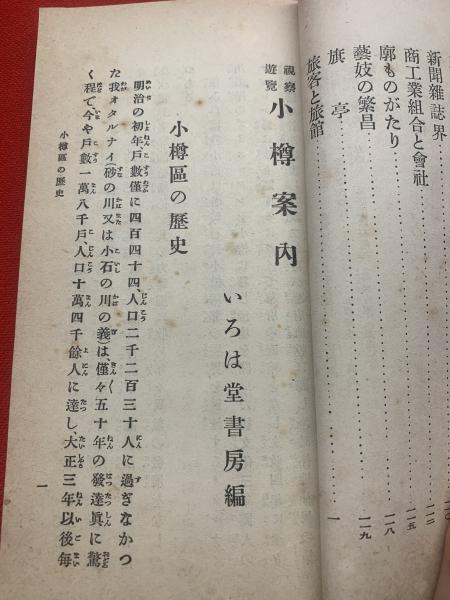 新聞雜誌界
商工業組合と會社
一一二
廓ものがたり
一一五
藝妓の繁昌
一一八
旗亭
一一九
旅客と旅館
一
視察遊覽 小樽案內
いろは堂書房編
小樽區の歷史
明治の初年戶數僅に四百四十四、人口二千二百三十人に過ぎなかつ
た我オタルナイ(砂の川又は小石の川の義)は、僅々五十年の發達眞に驚
く程で、今や戶數一萬八千戶、人口十萬四千餘人に達し、大正三年以後每
小樽區の歷史
一